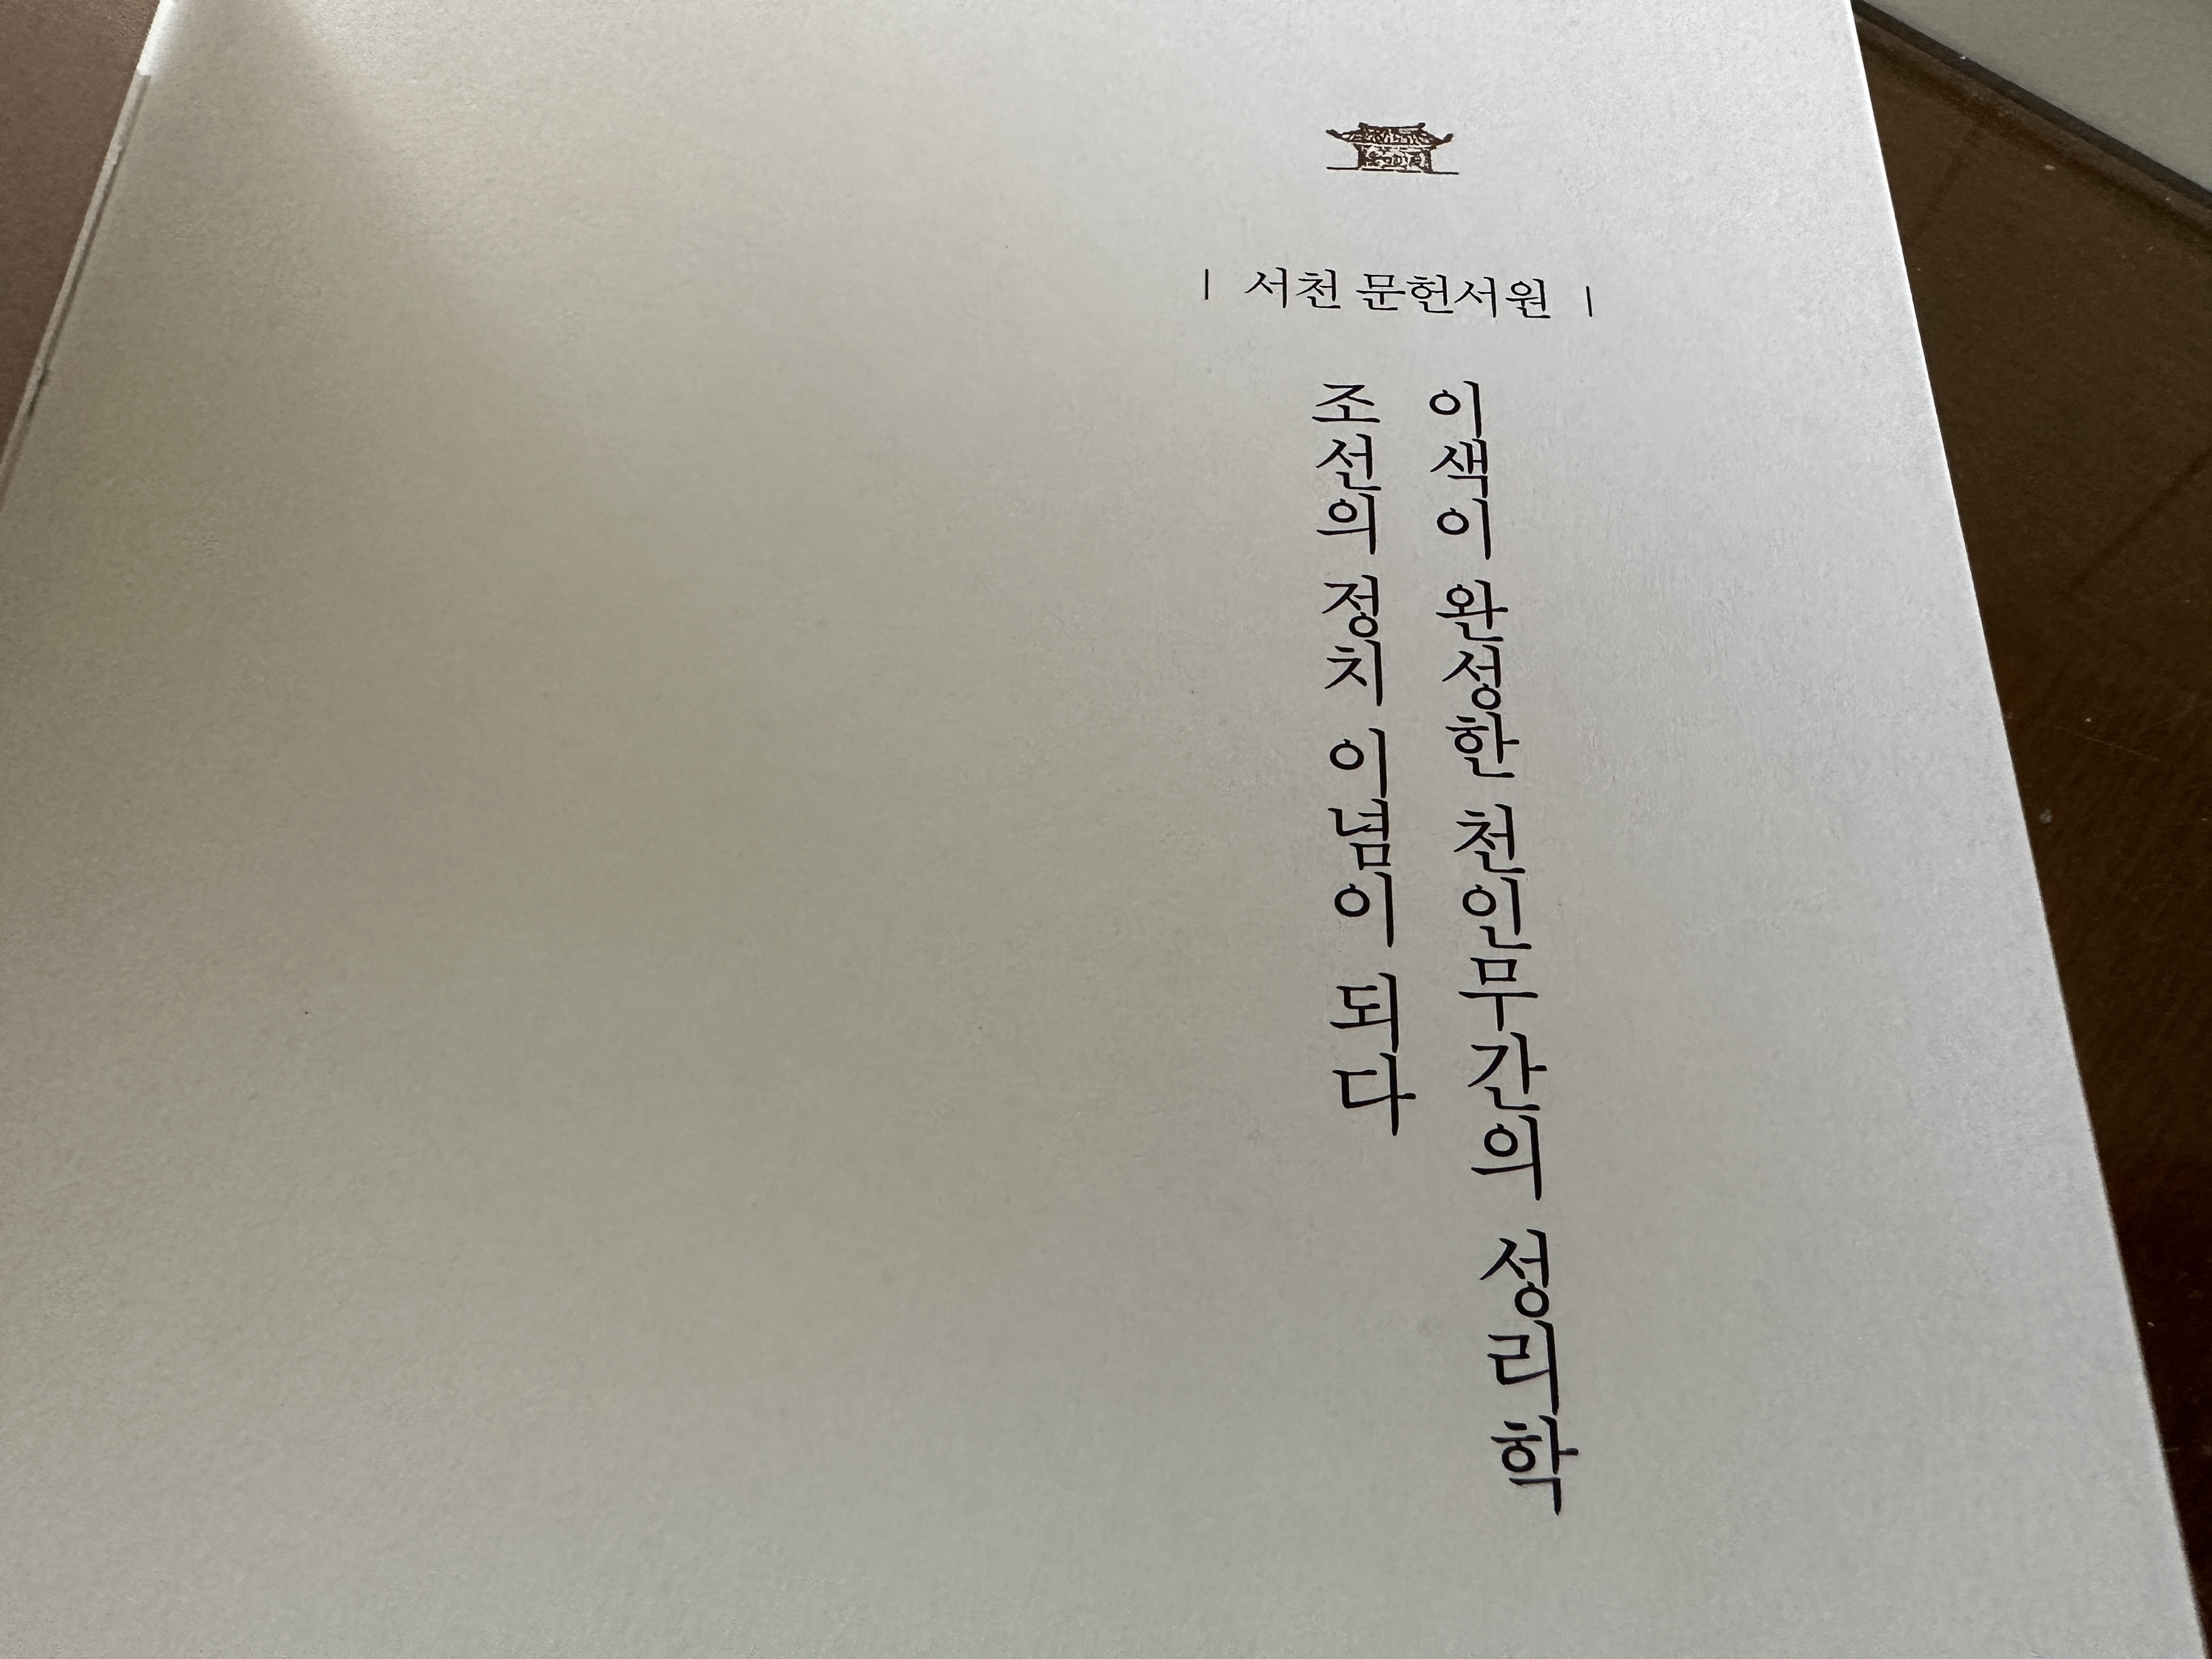 | 서천 문헌서원 |
이색이 완성한 천인무간의 성리학
조선의 정치 이념이 되다